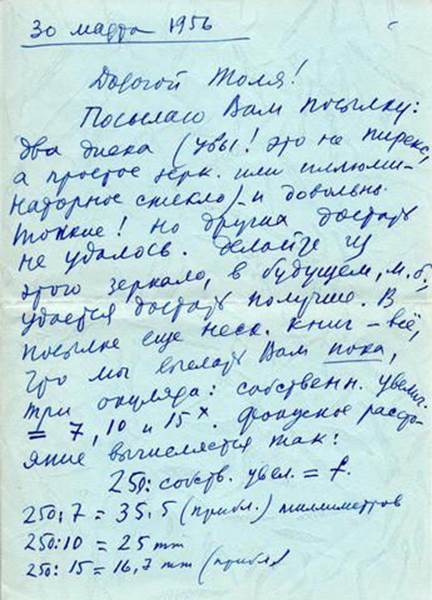 30 марта 1956
Дорогой Толя!
Посылаю Вам посылку:
два диска (увы! это не пирекс,
а простое зерк. или иллюми-
наторное стекло) и довольно
тонкие! Но других достать
не удалось. Делайте из
этого зеркало, в будущем, м.б,
удастся достать получше. В
посылке еще неск. книг – всё,
что мы выслать Вам пока,
три окуляра: собственн. увелич.
= 7, 10 и 15ˣ. Фокусное расстоя-
яние вычисляется так:
250: собств. увел. = f.
250:7 = 35.5 (прибл.) миллиметров
250:10 = 25 mm
250:15 = 16,7 mm (прибл)